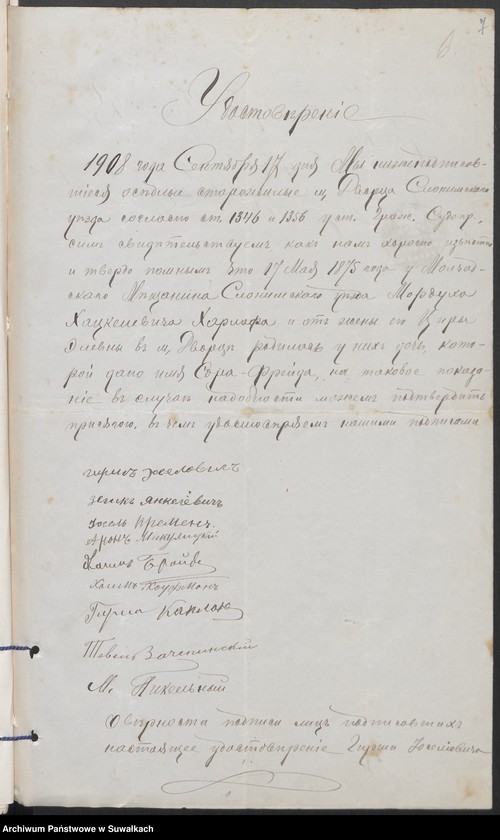 7
6.
Удостовѣреніе
1908 года Сентября 17 дня Мы нижеподписав-
шіеся осѣдлые старожилые м. Дворца Слонимскаго
уѣзда согласно ст. 1346 и 1356 уст. Граж. Судопр.
симъ свидѣтельствуемъ какъ намъ хорошо извѣстно
и твердо помнимъ что 17 Мая 1875 года у Молчад-
скаго Мѣщанина Слонимскаго уѣзда Мордуха
Хацкелевича Харлафа и отъ жены его Циры
Элевны въ м. Дворцѣ родилась у нихъ дочь, кото-
рой дано имя Сора-Фрейда, на таковое показа-
ніе въ случаѣ надобности можемъ подтвердить
присягою. въ чемъ удостовѣряемъ нашими подписями
Янкелевичъ
Іосель Кременъ.
Аронъ Микулицкій
Брайде
Гирша Капланъ
Тевель
М. Никельный
О вѣрности подписи лицъ подписавшихъ
настоящее удостовѣреніе Гирша Іоселовича
Archiwum Państwowe w Suwałkach